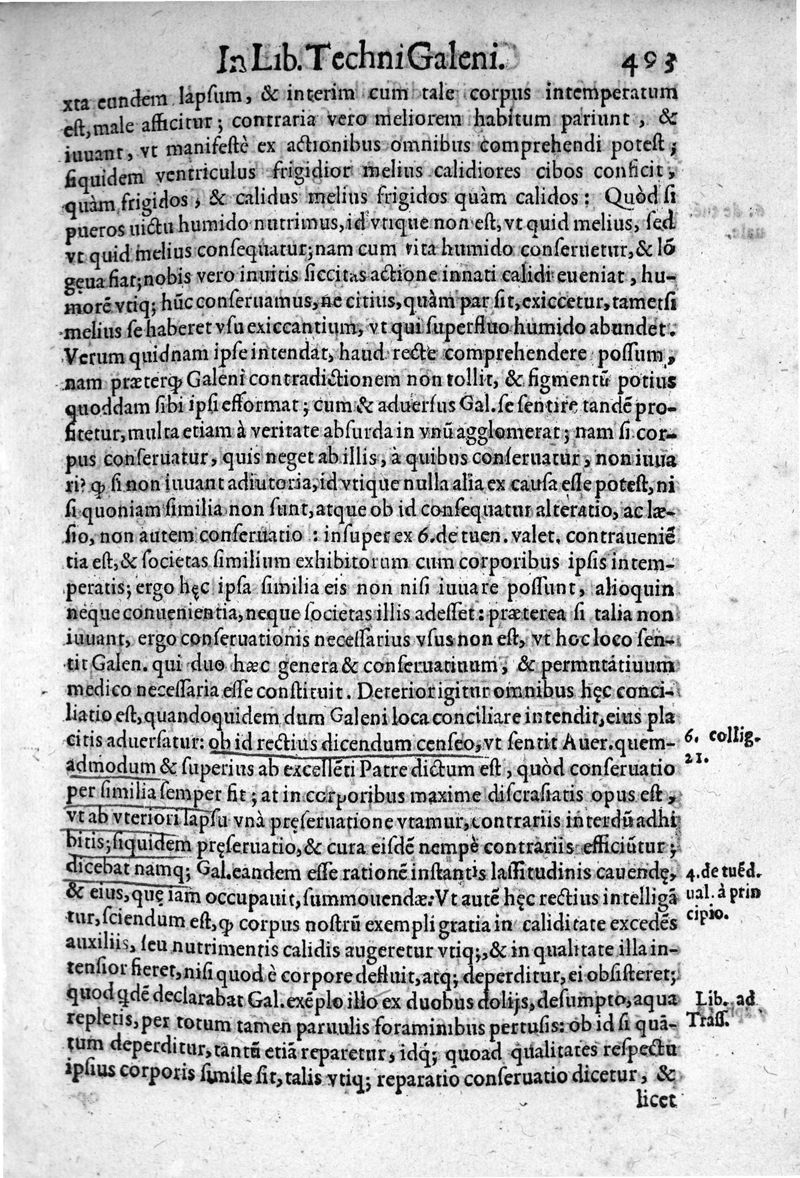 In Lib. Techni Galeni. 493
xta eundem lapsum, & interim cum tale corpus intemperatum
est, male afficitur; contraria vero meliorem habitum pariunt, &
iuuant, vt manifestè ex actionibus omnibus comprehendi potest;
siquidem ventriculus frigidior melius calidiores cibos conficit,
quàm frigidos, & calidus melius frigidos quàm calidos: Quòd si
pueros uictu humido nutrimus, id vtique non est, vt quid melius, sed
vt quid melius consequatur; nam cum vita humido conseruetur, & lō
geua fiat; nobis vero inuitis siccitas actione innati calidi eueniat, hu-
morē vtiq; hūc conseruamus, ne citius, quàm par sit, exiccetur, tametsi
melius se haberet vsu exiccantium, vt qui superfluo humido abundet.
Verum quidnam ipse intendat, haud recte comprehendere possum,
nam præterꝙ Galeni contradictionem non tollit, & figmentū potius
quoddam sibi ipsi efformat; cum & aduersus Gal. se sentire tandē pro-
fitetur, multa etiam à veritate absurda in vnū agglomerat; nam si cor-
pus conseruatur, quis neget ab illis, à quibus conseruatur, non iuua
ri? ꝙ si non iuuant adiutoria, id vtique nulla alia ex causa esse potest, ni
si quoniam similia non sunt, atque ob id consequatur alteratio, ac læ-
sio, non autem conseruatio: insuper ex 6. de tuen. valet. contraueniē
tia est, & societas similium exhibitorum cum corporibus ipsis intem-
peratis; ergo hęc ipsa similia eis non nisi iuuare possunt, alioquin
neque conuenientia, neque societas illis adesset: præterea si talia non
iuuant, ergo conseruationis necessarius vsus non est, vt hoc loco sen-
tit Galen. qui duo hæc genera & conseruatiuum, & permutatiuum
medico necessaria esse constituit. Deterior igitur omnibus hęc conci-
liatio est, quandoquidem dum Galeni loca conciliare intendit, eius pla
citis aduersatur: ob id rectius dicendum censeo, vt sentit Auer. quem-
6. collig.
21.
admodum & superius ab excellēti Patre dictum est, quòd conseruatio
per similia semper fit; at in corporibus maxime discrasiatis opus est,
vt ab vteriori lapsu vnà pręseruatione vtamur, contrariis interdū adhi
bitis; siquidem pręseruatio, & cura eisdē nempè contrariis efficiūtur;
dicebat namq; Gal. eandem esse rationē instantis lassitudinis cauendę,
4. de tuēd.
& eius, quę iam occupauit, summouendæ. Vt autē hęc rectius intelligā
ual. à prin
tur, sciendum est, ꝙ corpus nostrū exempli gratia in caliditate excedēs
cipio.
auxiliis, seu nutrimentis calidis augeretur vtiq;, & in qualitate illa in-
tensior fieret, nisi quod è corpore defluit, atq; deperditur, ei obsisteret;
quod qdē declarabat Gal. exēplo illo ex duobus dolijs, desumpto, aqua
Lib. ad
repletis, per totum tamen paruulis foraminibus pertusis: ob id si quā-
Trass.
tum deperditur, tantū etiā reparetur, idq; quoad qualitates respectu
ipsius corporis simile sit, talis vtiq; reparatio conseruatio dicetur, &
licet